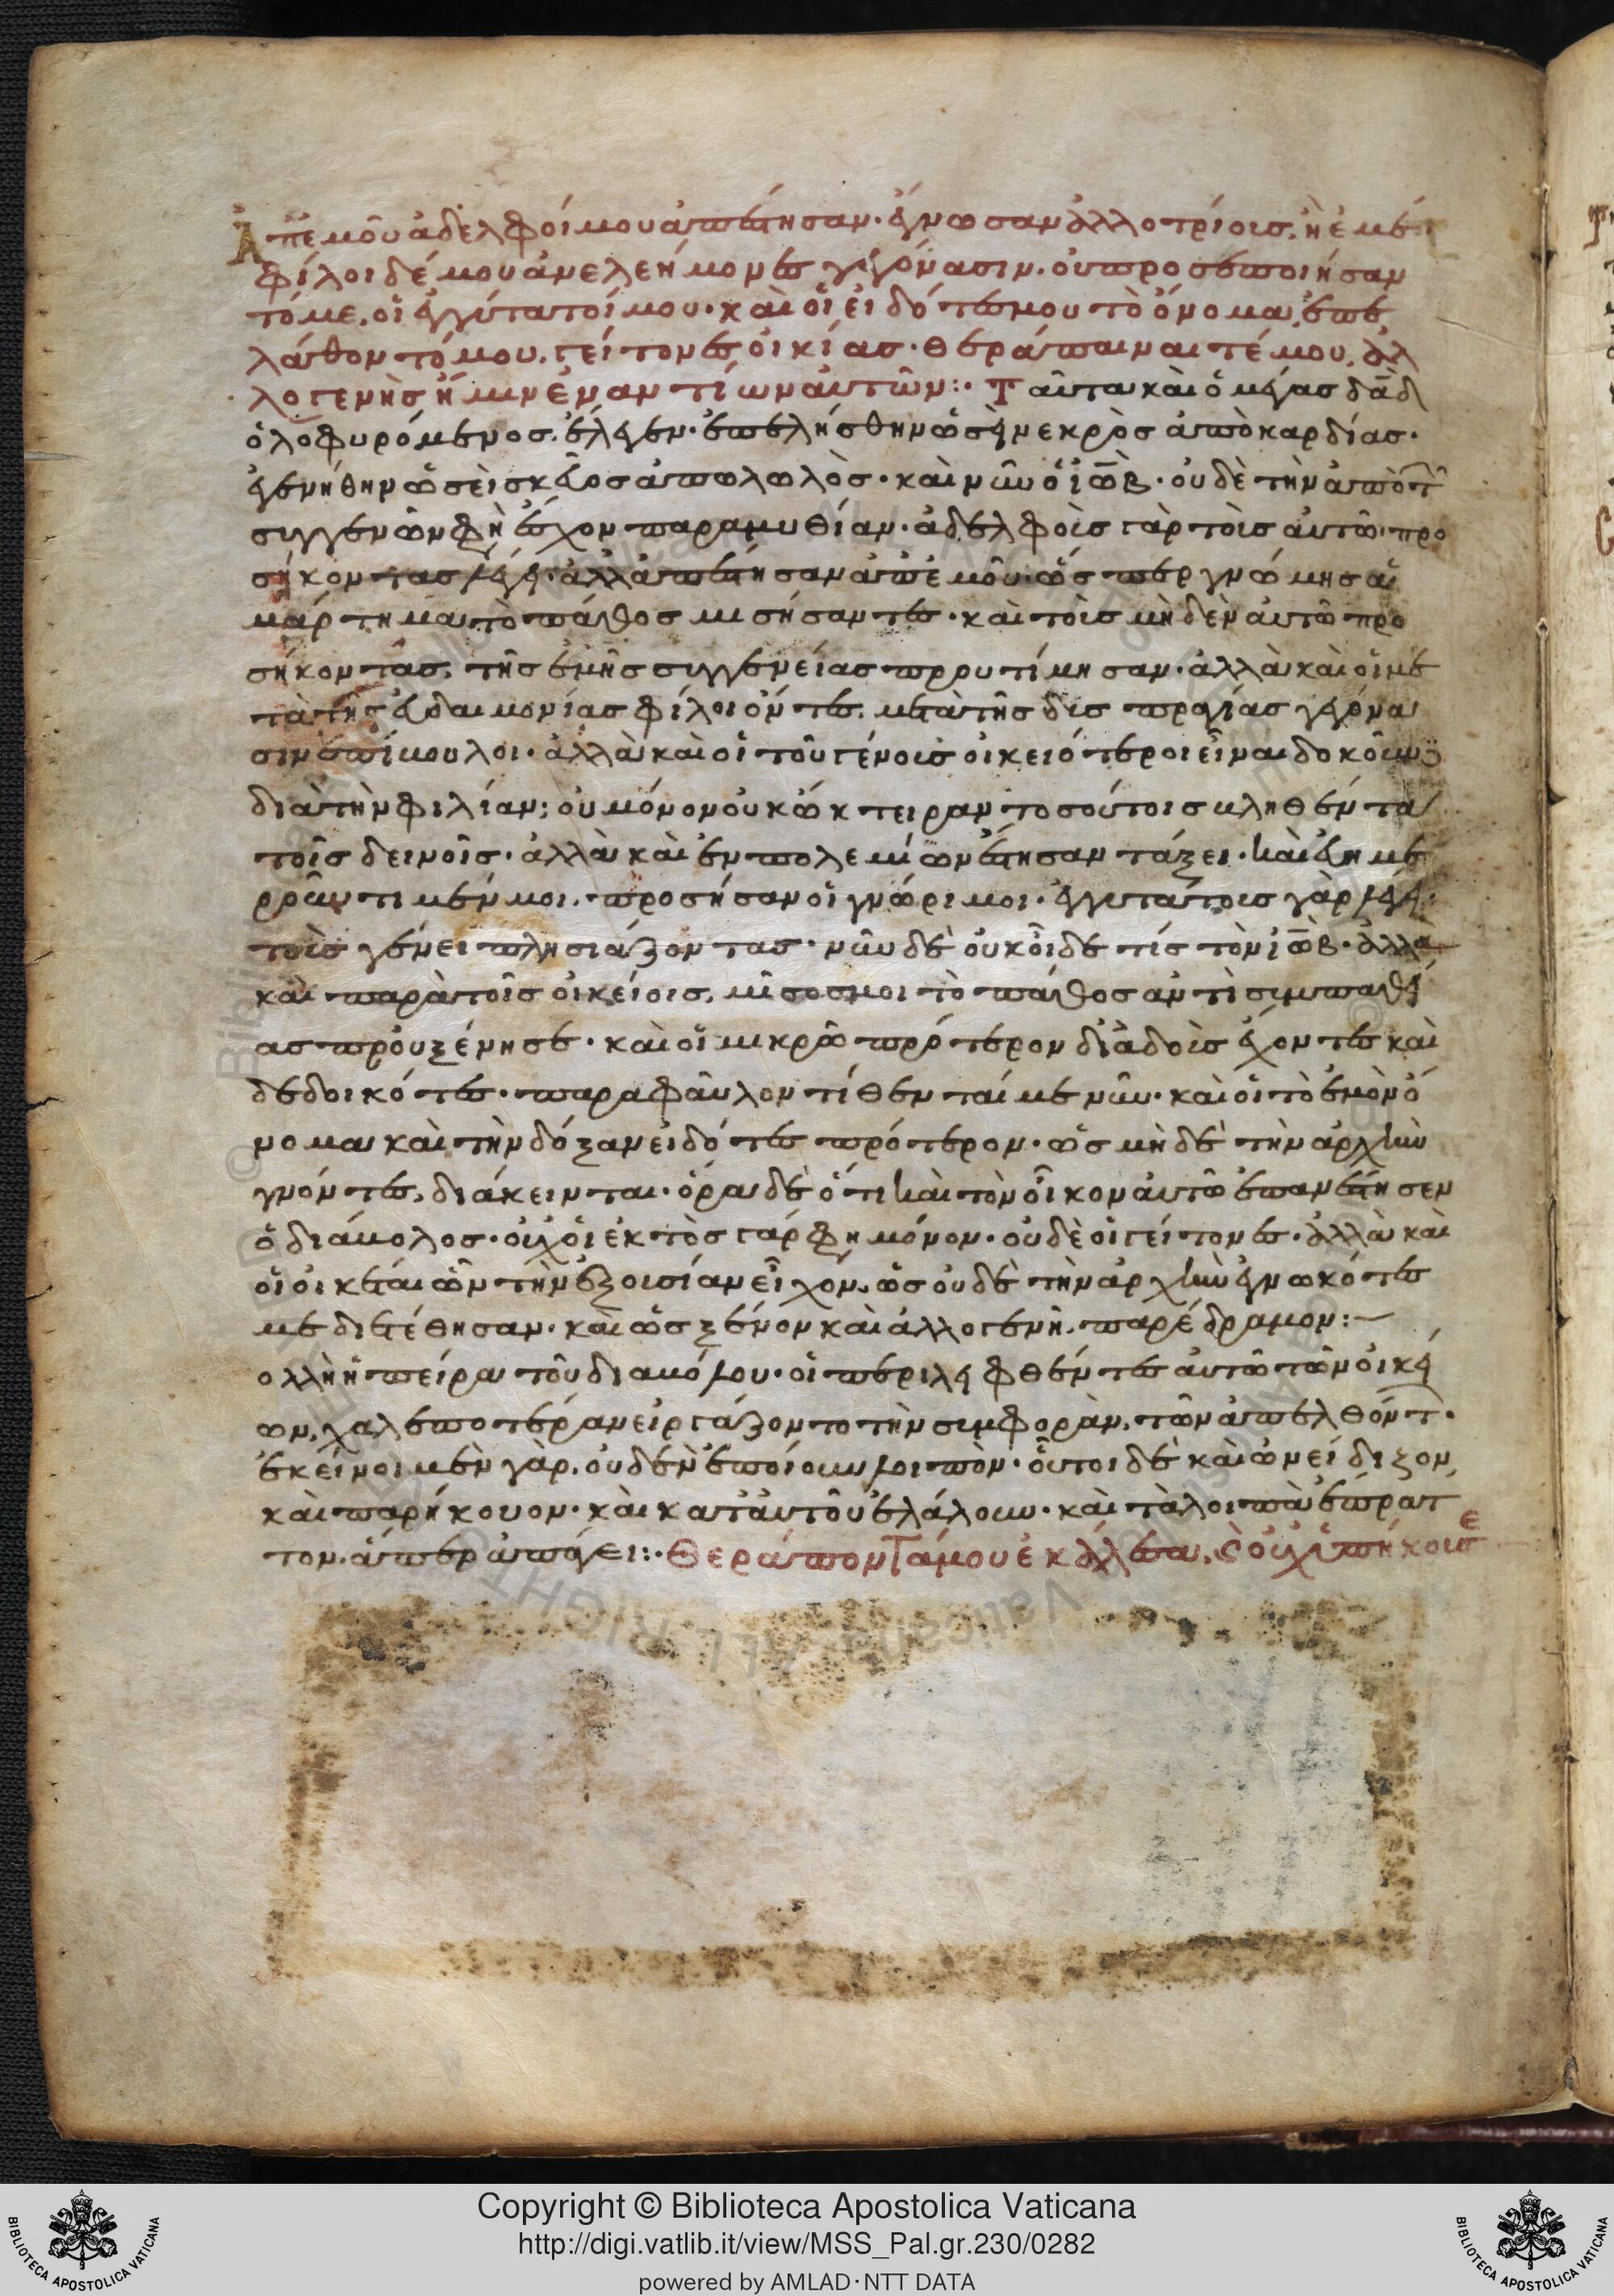 Ἀπ' ἐμοῦ ἀδελφοί μου ἀπέστησαν· ἔγνωσαν ἀλλοτρίοις, ἢ ἐμέ·
φίλοι δέ μου ἀνελεήμονες γεγόνασιν. οὐ προσεποιήσαν
τό με, οἱ ἐγγύτατοί μου· καὶ οἱ εἰδότες μου τὸ ὄνομα, ἐπε
λάθοντό μου. γείτονες οἰκίας· θεράπαιναί τέ μου, ἀλ
λογενὴς ἤμην ἐναντίων αὐτῶν:· Ταῦτα καὶ ὁ μέγας δᾱδ
ὀλοφυρόμενος, ἔλεγεν· ἐπελήσθην ὡσεὶ νεκρὸς ἀπὸ καρδίας·
ἐγενήθην ὡσεὶ σκεῦος ἀπωλωλὸς· καὶ νῦν ὁ ἰὼβ· οὐδὲ τὴν ἀπὸ τ
συγγενῶν φὴ ἔσχον παραμυθίαν· ἀδελφοὺς γὰρ τοὺς αὐτῶ προ
σήκοντας λέγει· ἀλλ' ἀπέστησαν ἀπ' ἐμοῦ· ὥσπερ γνώμης ἁ
μάρτημα τὸ πάθος μισήσαντες· καὶ τοὺς μηδὲν αὐτῶ προ
σήκοντας, τῆς ἐμῆς συγγενείας προυτίμησαν· ἀλλὰ καὶ οἱ με
τὰ τῆς εὐδαιμονίας φίλοι ὄντες, μετὰ τῆς δυσπραγίας γεγόνα
σιν ἐπίβουλοι· ἀλλὰ καὶ οἱ τοῦ γένους οἰκειότεροι εἶναι δοκοῦντες
διὰ τὴν φιλίαν; οὐ μόνον οὐκ ὤκτειραν τοσούτοις βληθέντα
τοῖς δεινοῖς· ἀλλὰ καὶ ἐν πολεμίων ἔστησαν τάξει· καὶ εὐημε
ροῦντι μέν μοι, προσῆσαν οἱ γνώριμοι· ἐγγυτάτους γὰρ λέγει·
τοὺς γένει πλησιάζοντας· νῦν δὲ οὐκ οἶδε τίς τὸν ἰὼβ· ἀλλὰ
καὶ παρὰ τοῖς οἰκείοις, μῖσος μοι τὸ πάθος ἀντὶ συμπαθεί
ας προυξένησε· καὶ οἱ μικρῶ πρότερον δι' αἰδοῦς ἔχοντες καὶ
δεδοικότες· παρὰ φαῦλον τίθενταί με νῦν· καὶ οἱ τὸ ἐμὸν ὄ
νομα καὶ τὴν δόξαν εἰδότες πρότερον· ὡς μὴ δὲ τὴν ἀρχὴν
γνόντες, διάκεινται· ὅρα δὲ ὅτι καὶ τὸν οἶκον αὐτῶ ἐπανέστησεν
ὁ διάβολος· οὐχ' οἱ ἐκτὸς γάρ φη μόνον· οὐδὲ οἱ γείτονες· ἀλλὰ καὶ
οἱ οἰκέται ὧν τὴν ἐξουσίαν εἶχον, ὡς οὐδὲ τὴν ἀρχὴν ἐγνωκότες
με διετέθησαν· καὶ ὡς ξένον καὶ ἀλλογενῆ, παρέδραμον:
ολλὴ ἡ πείρα τοῦ διαβόλου· οἱ περιλειφθέντες αὐτῶ τῶν οἰκεί
ων, χαλεπωτέραν εἰργάζοντο τὴν συμφορὰν, τῶν ἀπελθόντ·
ἐκείνοι μὲν γὰρ, οὐδὲν ἐποίουν λοιπὸν· οὗτοι δὲ καὶ ὠνείδιζον
καὶ παρήκουον· καὶ κατ' αὐτοῦ ἐλάλουν· καὶ τὰ λοιπὰ ἔπρατ
τον, ἅπερ ἀπάγει:· Θεράποντά μου ἐκάλεσα, καὶ οὐχ' ὑπήκουσε
Copyright © Biblioteca Apostolica Vaticana
http://digi.vatlib.it/view/MSS_Pal.gr.230/0282
powered by AMLAD·NTT DATA
BIBLIOTECA APOSTOLICA VATICANA
BIBLIOTECA APOSTOLICA VATICANA